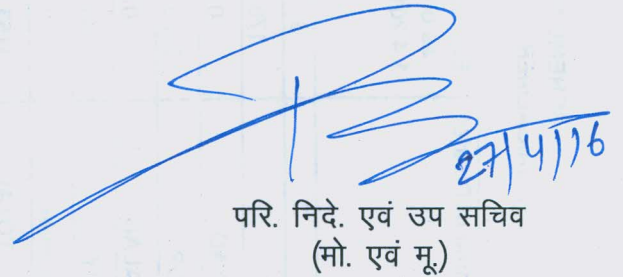 27/4/16
परि. निदे. एवं उप सचिव
(मो. एवं मू.)